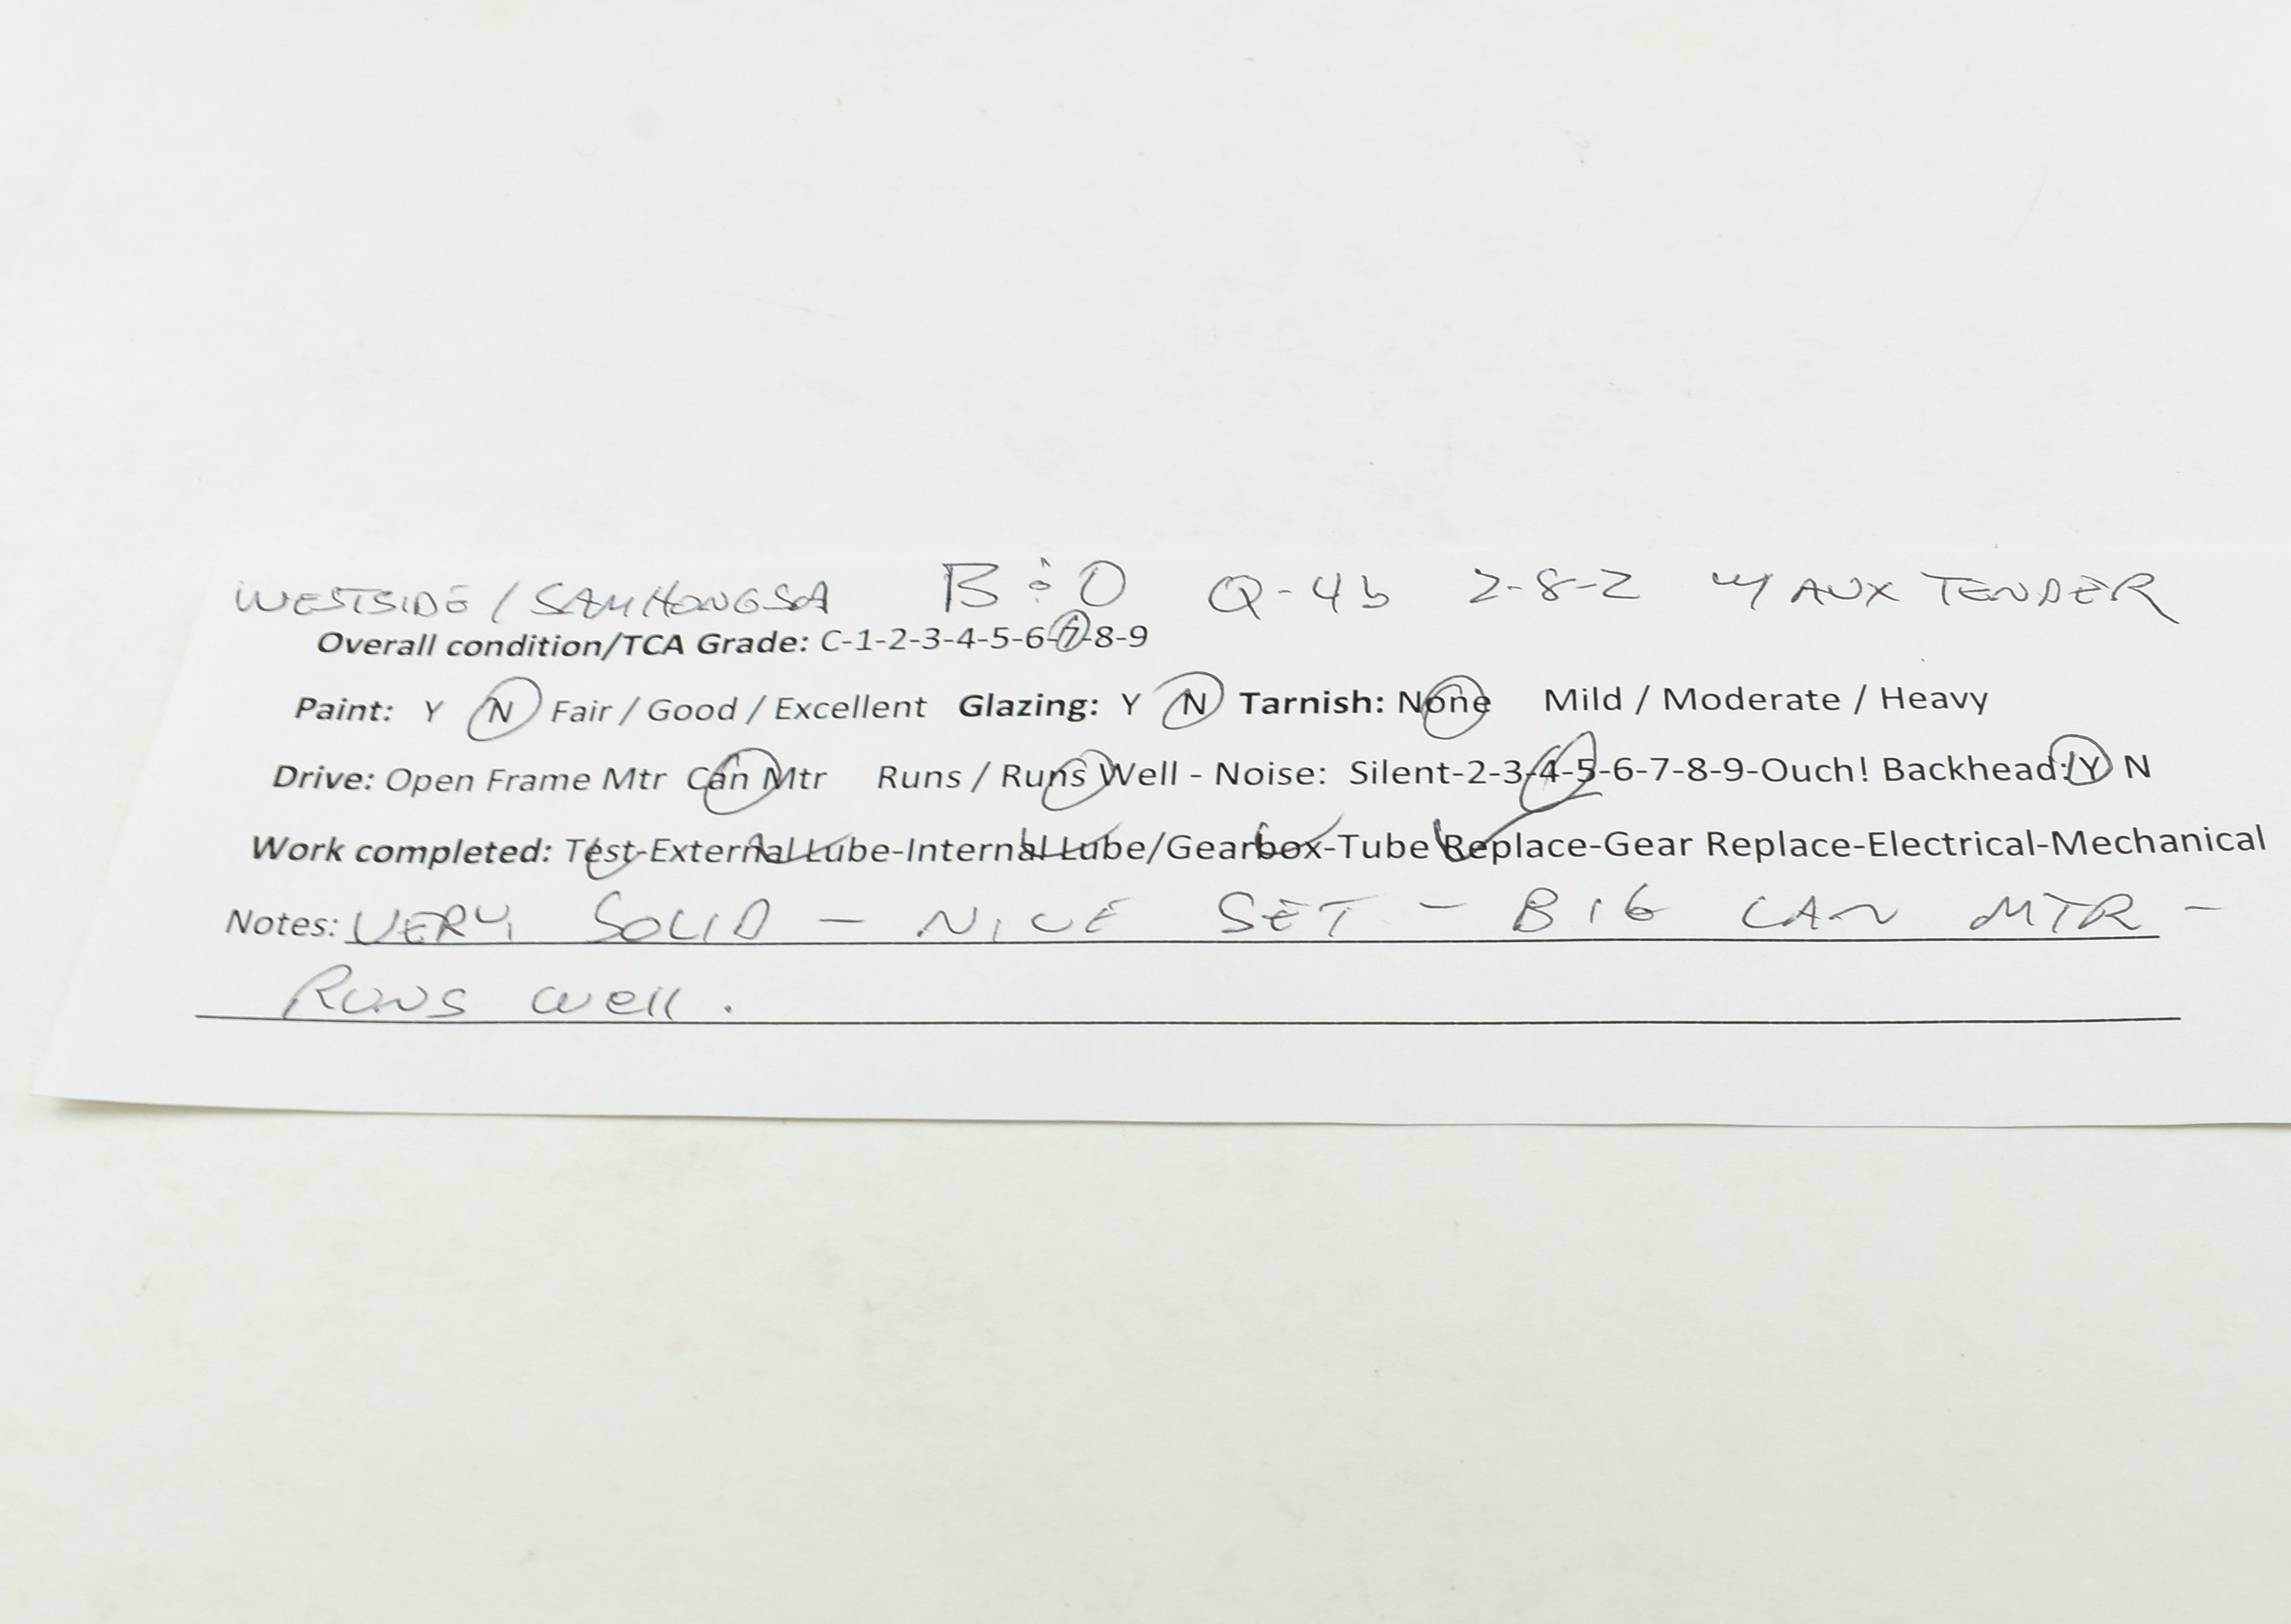 WESTSIDE / SAMHONGSA B & O Q-4b 2-8-2 w/ AUX TENDER
Overall condition/TCA Grade: C-1-2-3-4-5-6-7-8-9
Paint: Y N Fair / Good / Excellent Glazing: Y N Tarnish: None Mild / Moderate / Heavy
Drive: Open Frame Mtr Can Mtr Runs / Runs Well - Noise: Silent-2-3-4-5-6-7-8-9-Ouch! Backhead: Y N
Work completed: Test-External Lube-Internal Lube/Gearbox-Tube Replace-Gear Replace-Electrical-Mechanical
Notes: VERY SOLID - NICE SET - BIG CAN MTR -
RUNS well.